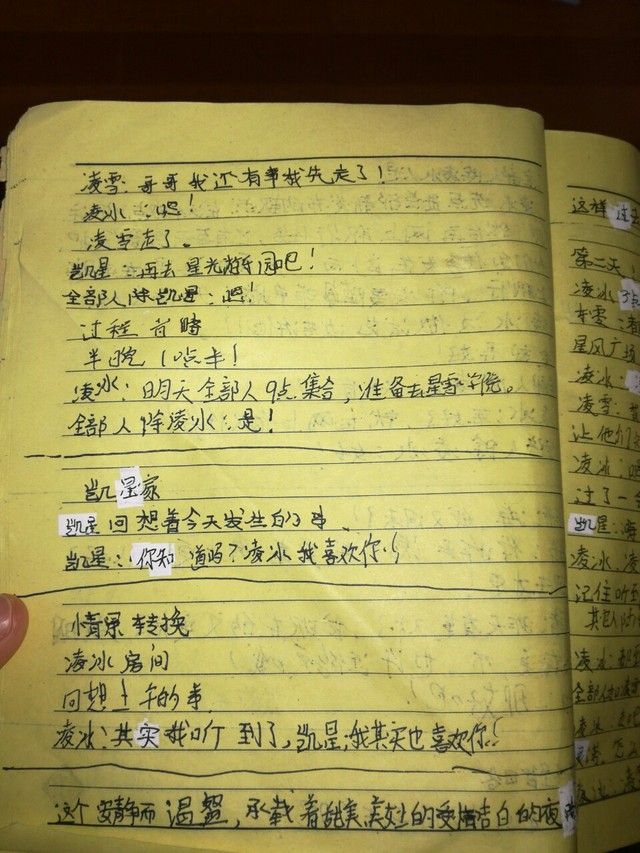 凌雪：哥哥我还有事我先走了！
凌冰：嗯！
凌雪走了。
凯星：再去星光游园吧！
全部人除凯星：嗯！
过程省略
半晚10点半！
凌冰：明天全部人9点集合，准备去星雪学院。
全部人除凌冰：是！
凯星家
凯星回想着今天发生的事。
凯星：你知道吗？凌冰我喜欢你！
情景转换
凌冰房间
回想上午的事
凌冰：其实我听到了，凯星，我其实也喜欢你！
这个安静而温馨，承载着甜美美好的爱情告白的夜
这样
第二天
凌冰
星风广场
凌冰
凌雪：
让他们
凌冰：
过了一
凯星：
凌冰：凌
记住听到
其它人
凌冰：
全部人
凌冰：
凌冰：